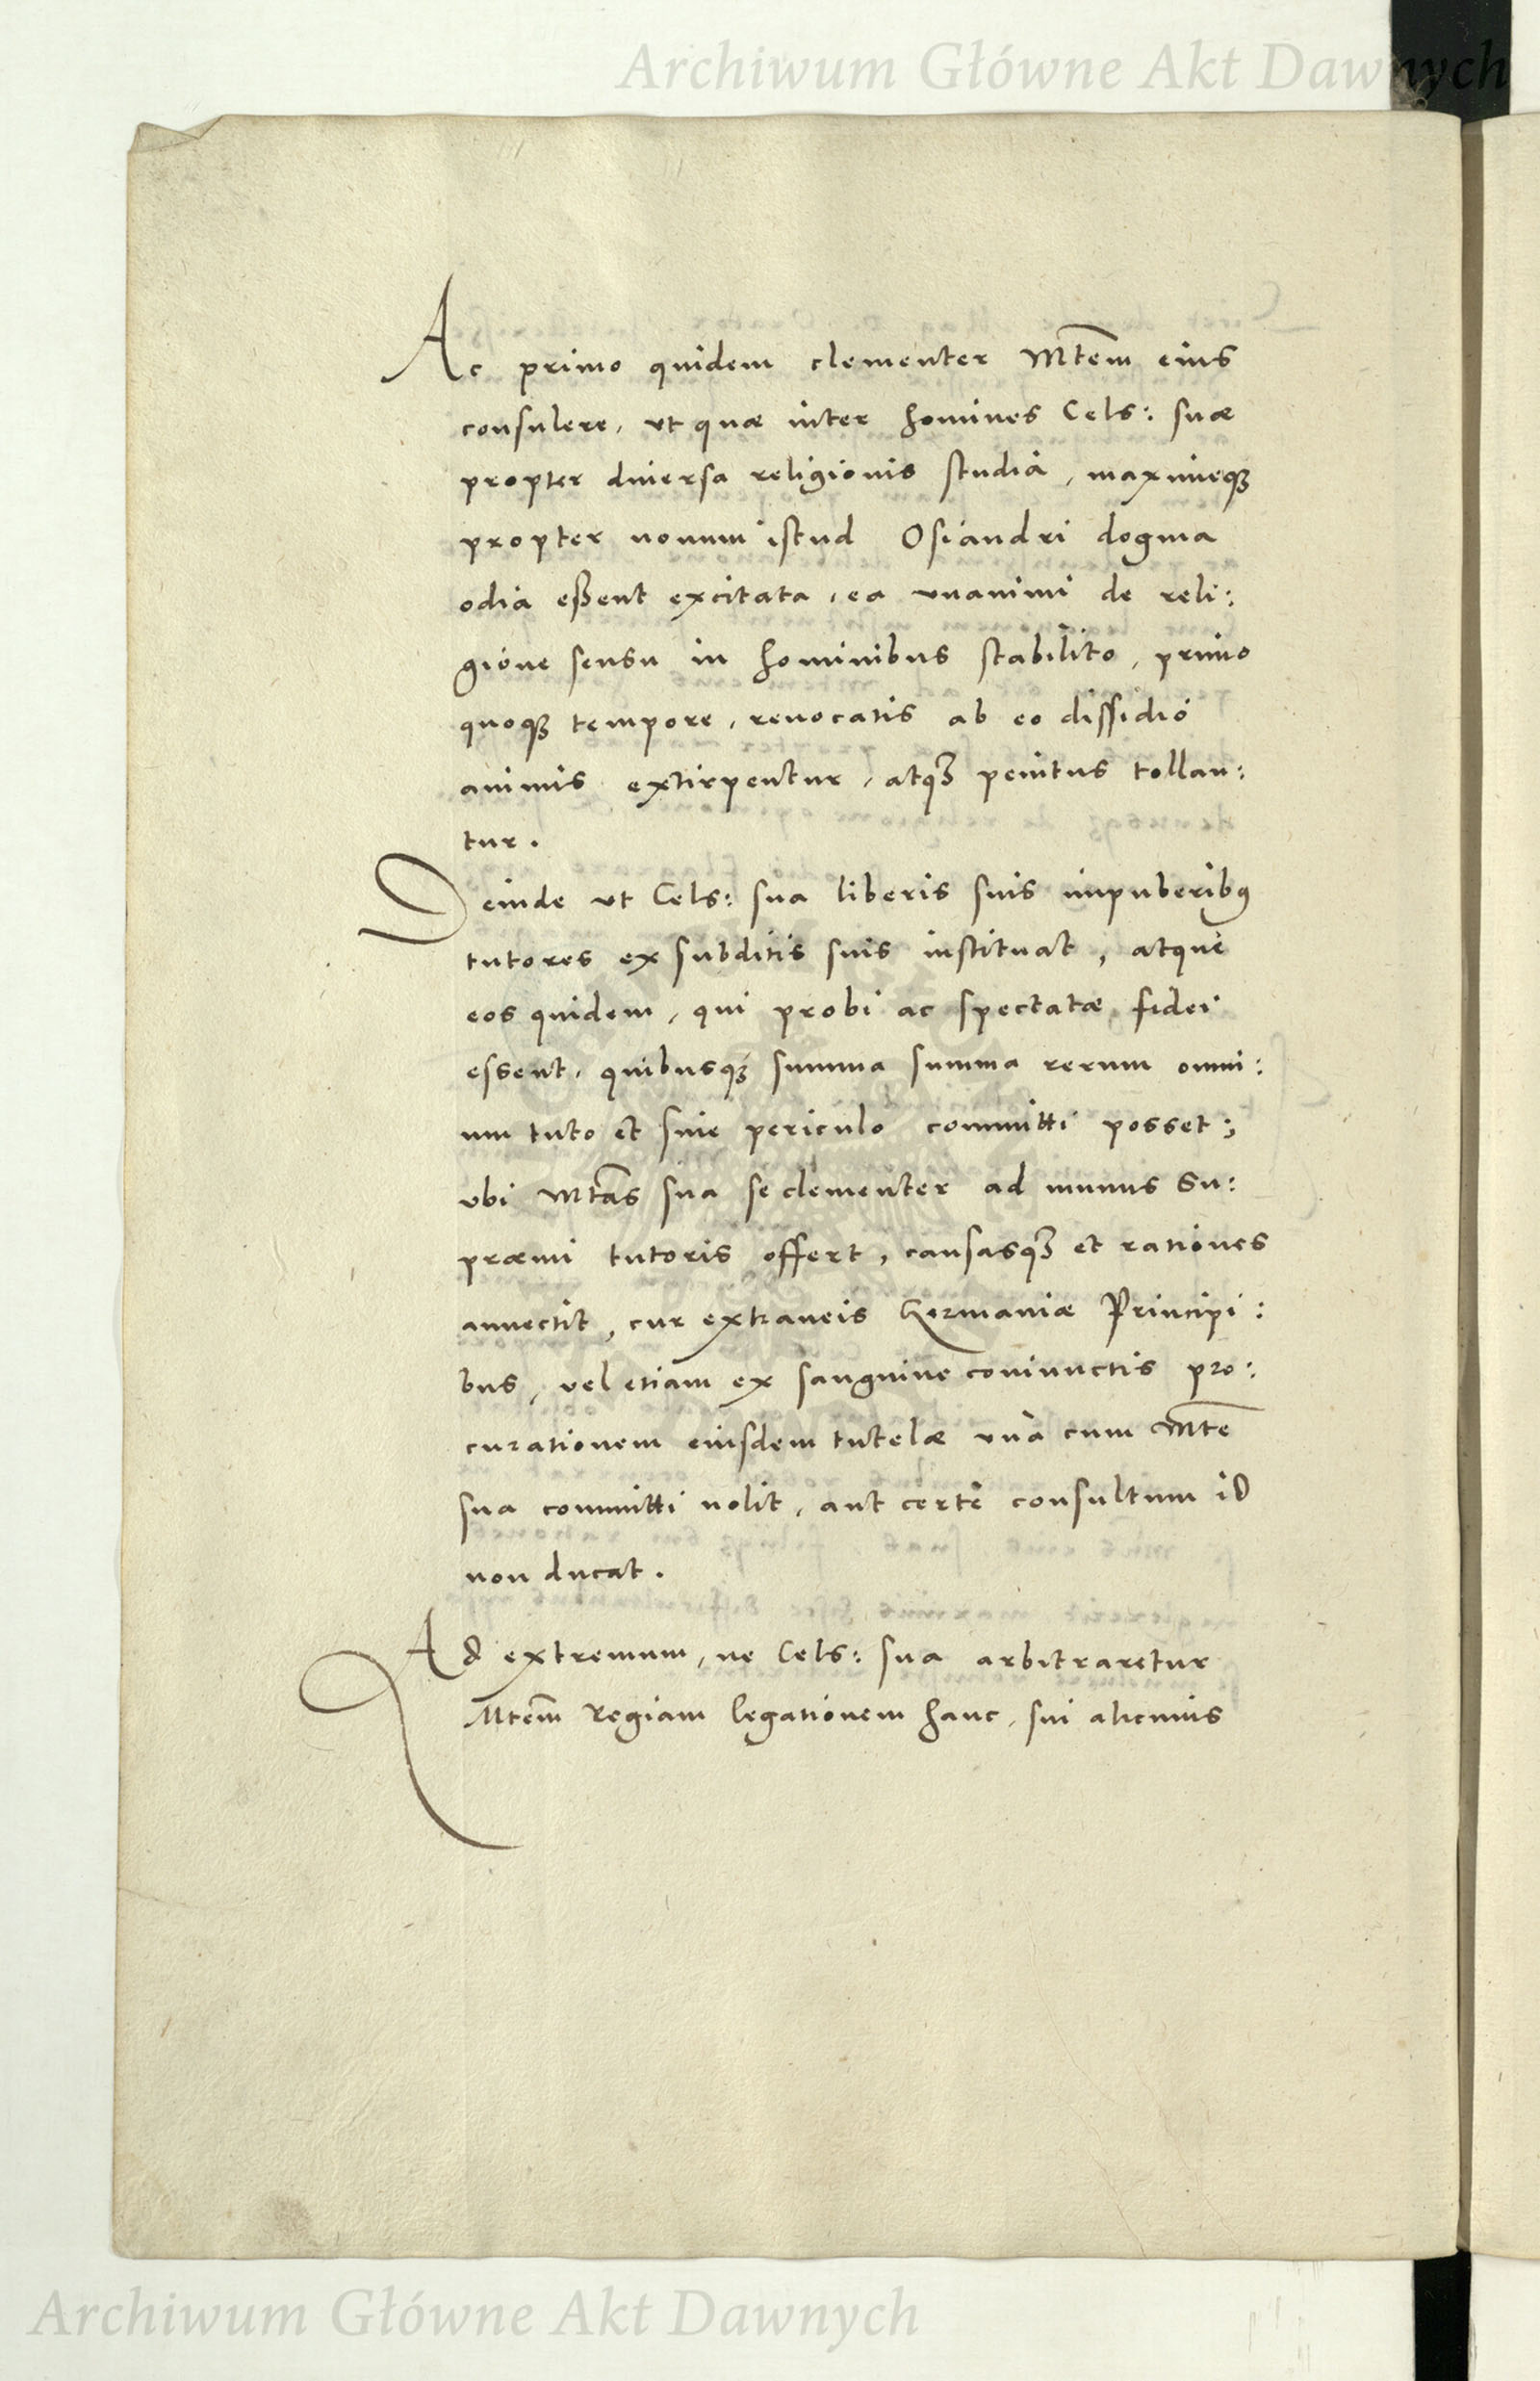 Archiwum Główne Akt Dawnych
Ac primo quidem clementer Mtem eius
consulere, ut quæ inter homines Cels: suæ
propter diuersa religionis studia, maximeqꝫ
propter nouum istud Osiandri dogma
odia eßent excitata, ea vnanimi de reli:
gione sensu in hominibus stabilito, primo
quoqꝫ tempore, reuocatis ab eo dissidio
animis extirpentur, atqꝫ penitus tollan:
tur.
Deinde ut Cels: sua liberis suis impuberibꝰ
tutores ex subditis suis instituat, atque
eos quidem, qui probi ac spectatæ fidei
essent, quibusqꝫ summa summa rerum omni:
um tuto et sine periculo committi posset;
vbi Mtas sua se clementer ad munus Su:
præmi tutoris offert, causasqꝫ et rationes
annectit, cur extraneis Germaniæ Principi:
bus, vel etiam ex sanguine coniunctis pro:
curationem eiusdem tutelæ vnà cum Mte
sua committi nolit, aut certè consultum id
non ducat.
Ad extremum, ne Cels: sua arbitraretur
Mtem Regiam legationem hanc, sui alicuius
Archiwum Główne Akt Dawnych